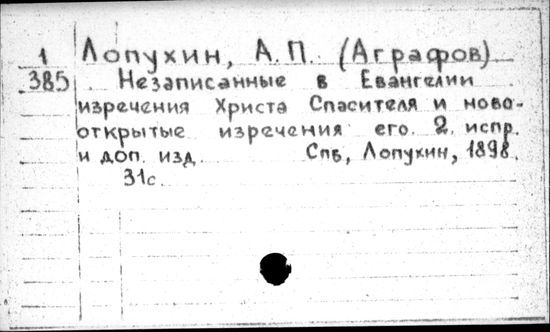 1 Лопухин, А.П. (Аграфов)
385 Незаписанные в Евангелии
изречения Христа Спасителя и ново-
открытые изречения его. 2. испр.
и доп. изд. Спб, Лопухин, 1898.
31с.